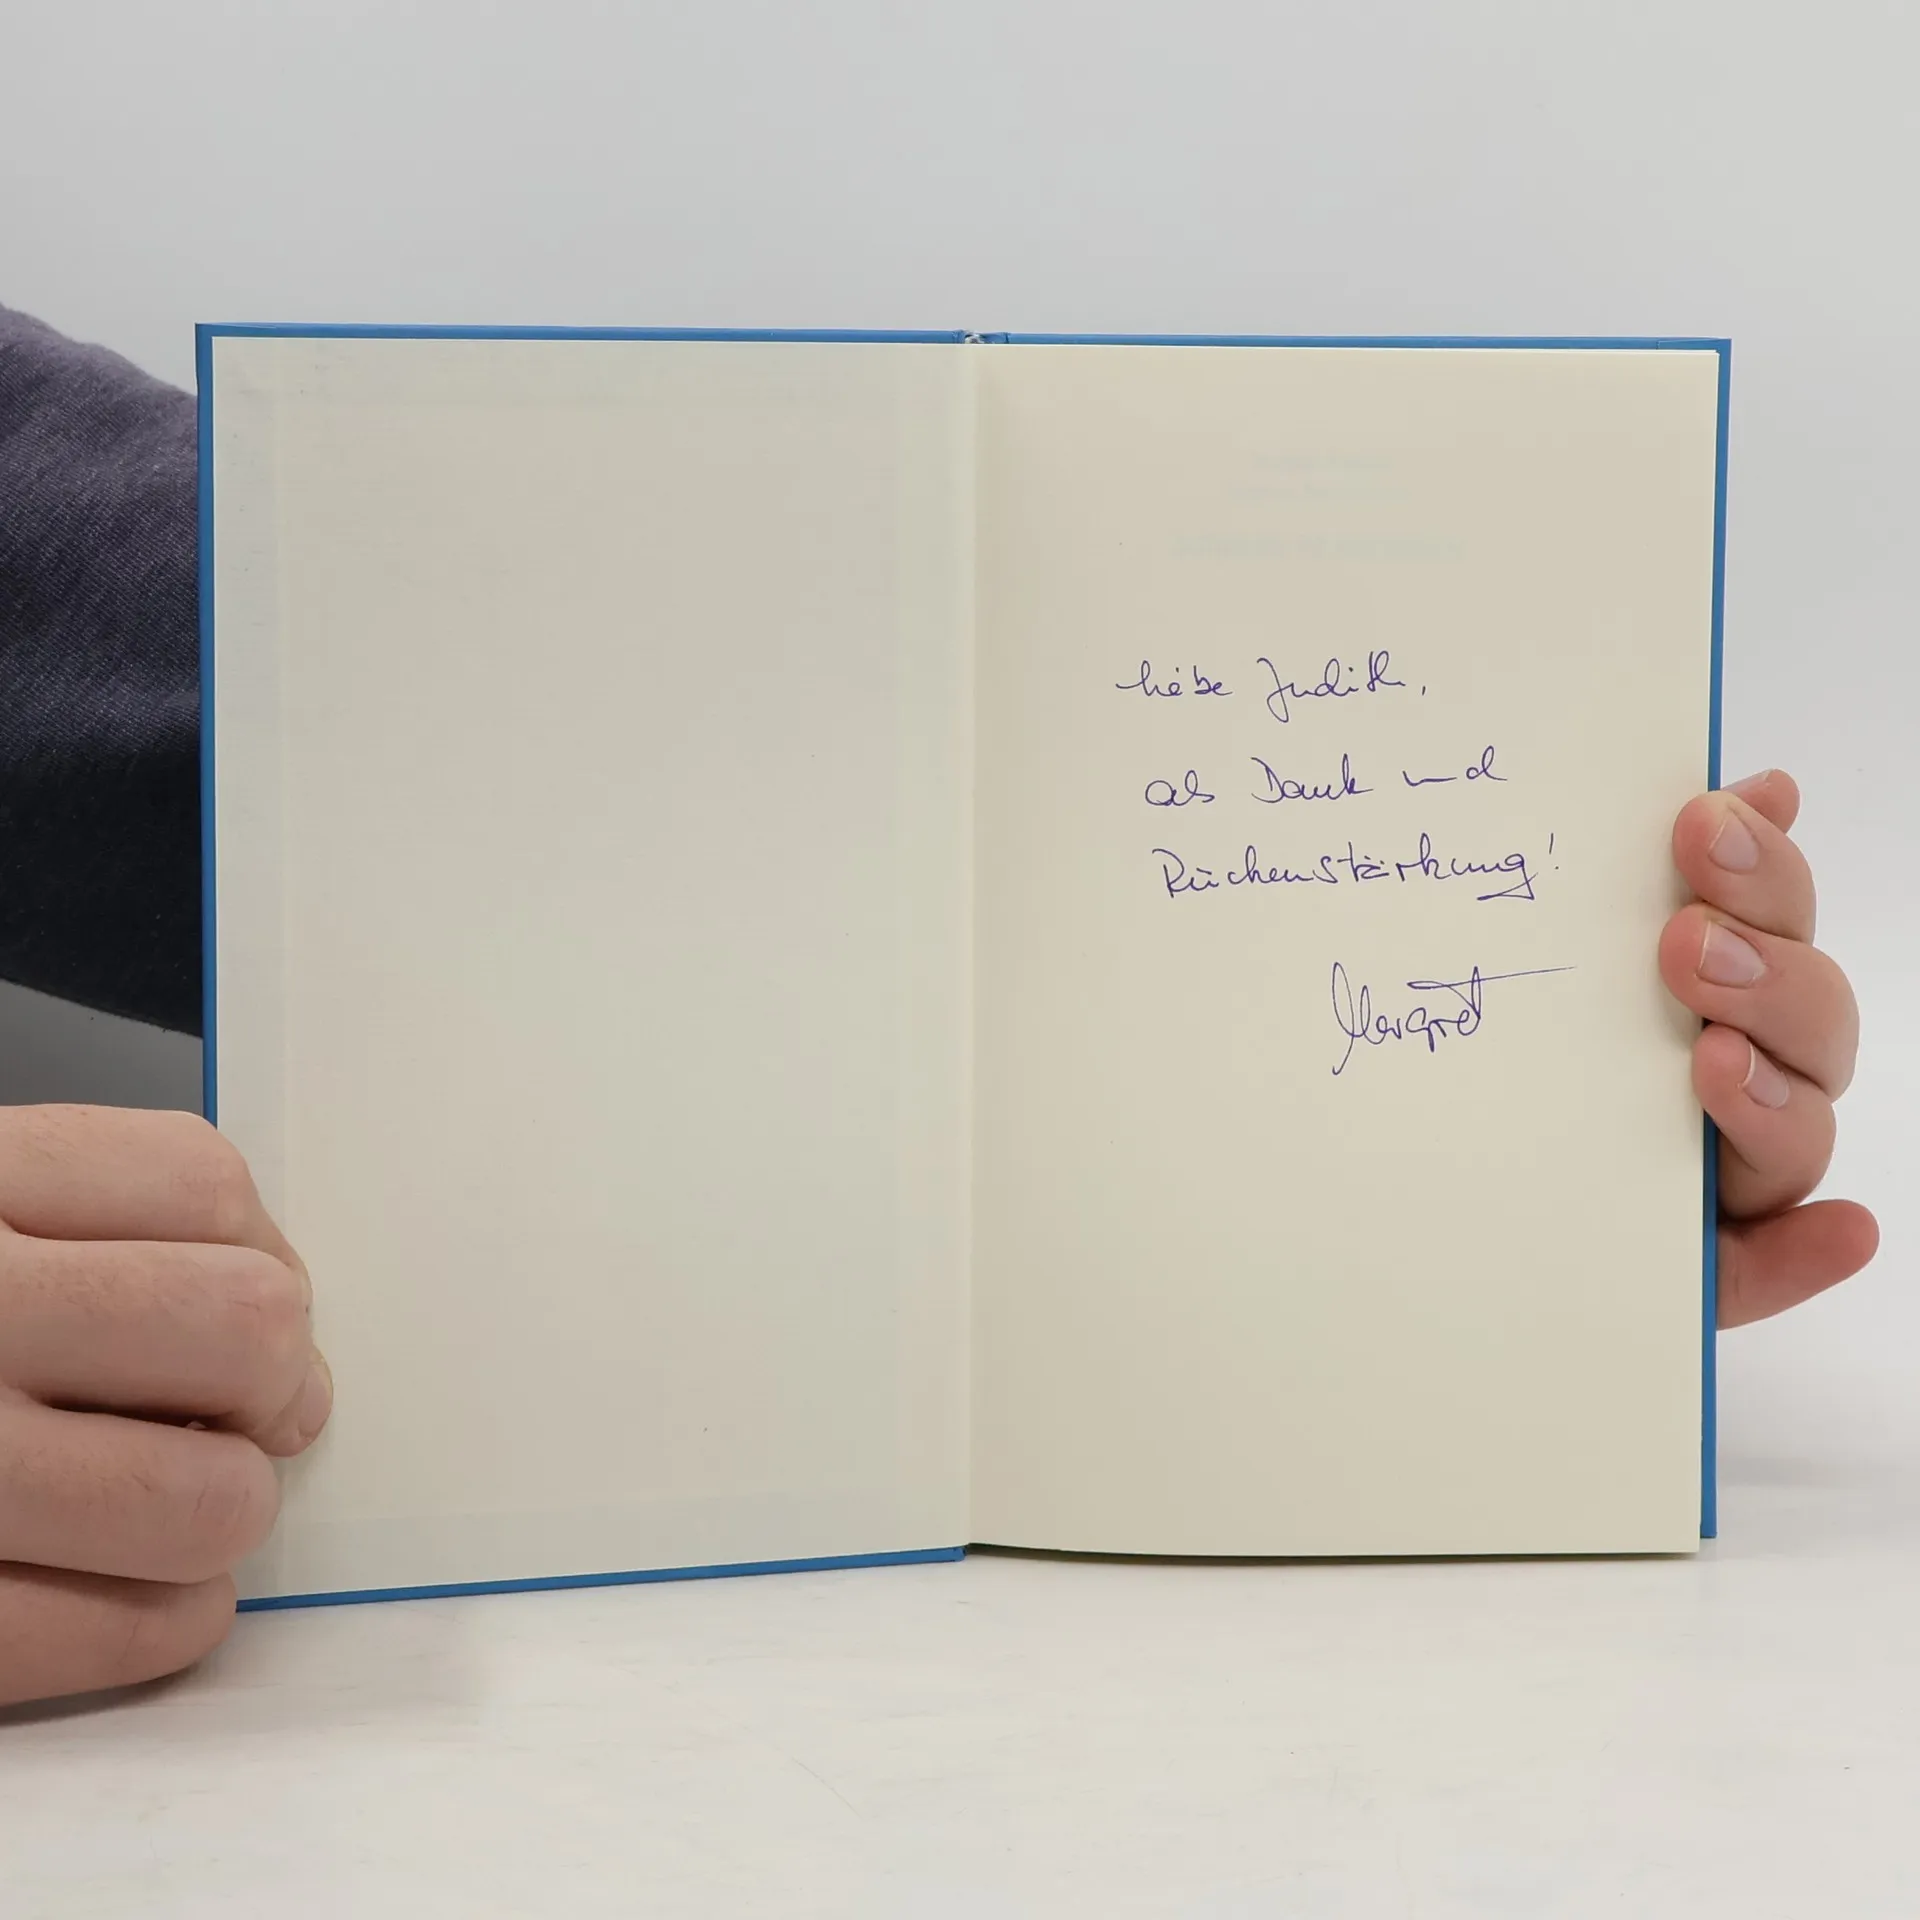 Liebe Judith,
als Dank und
Rückenstärkung!
Margret